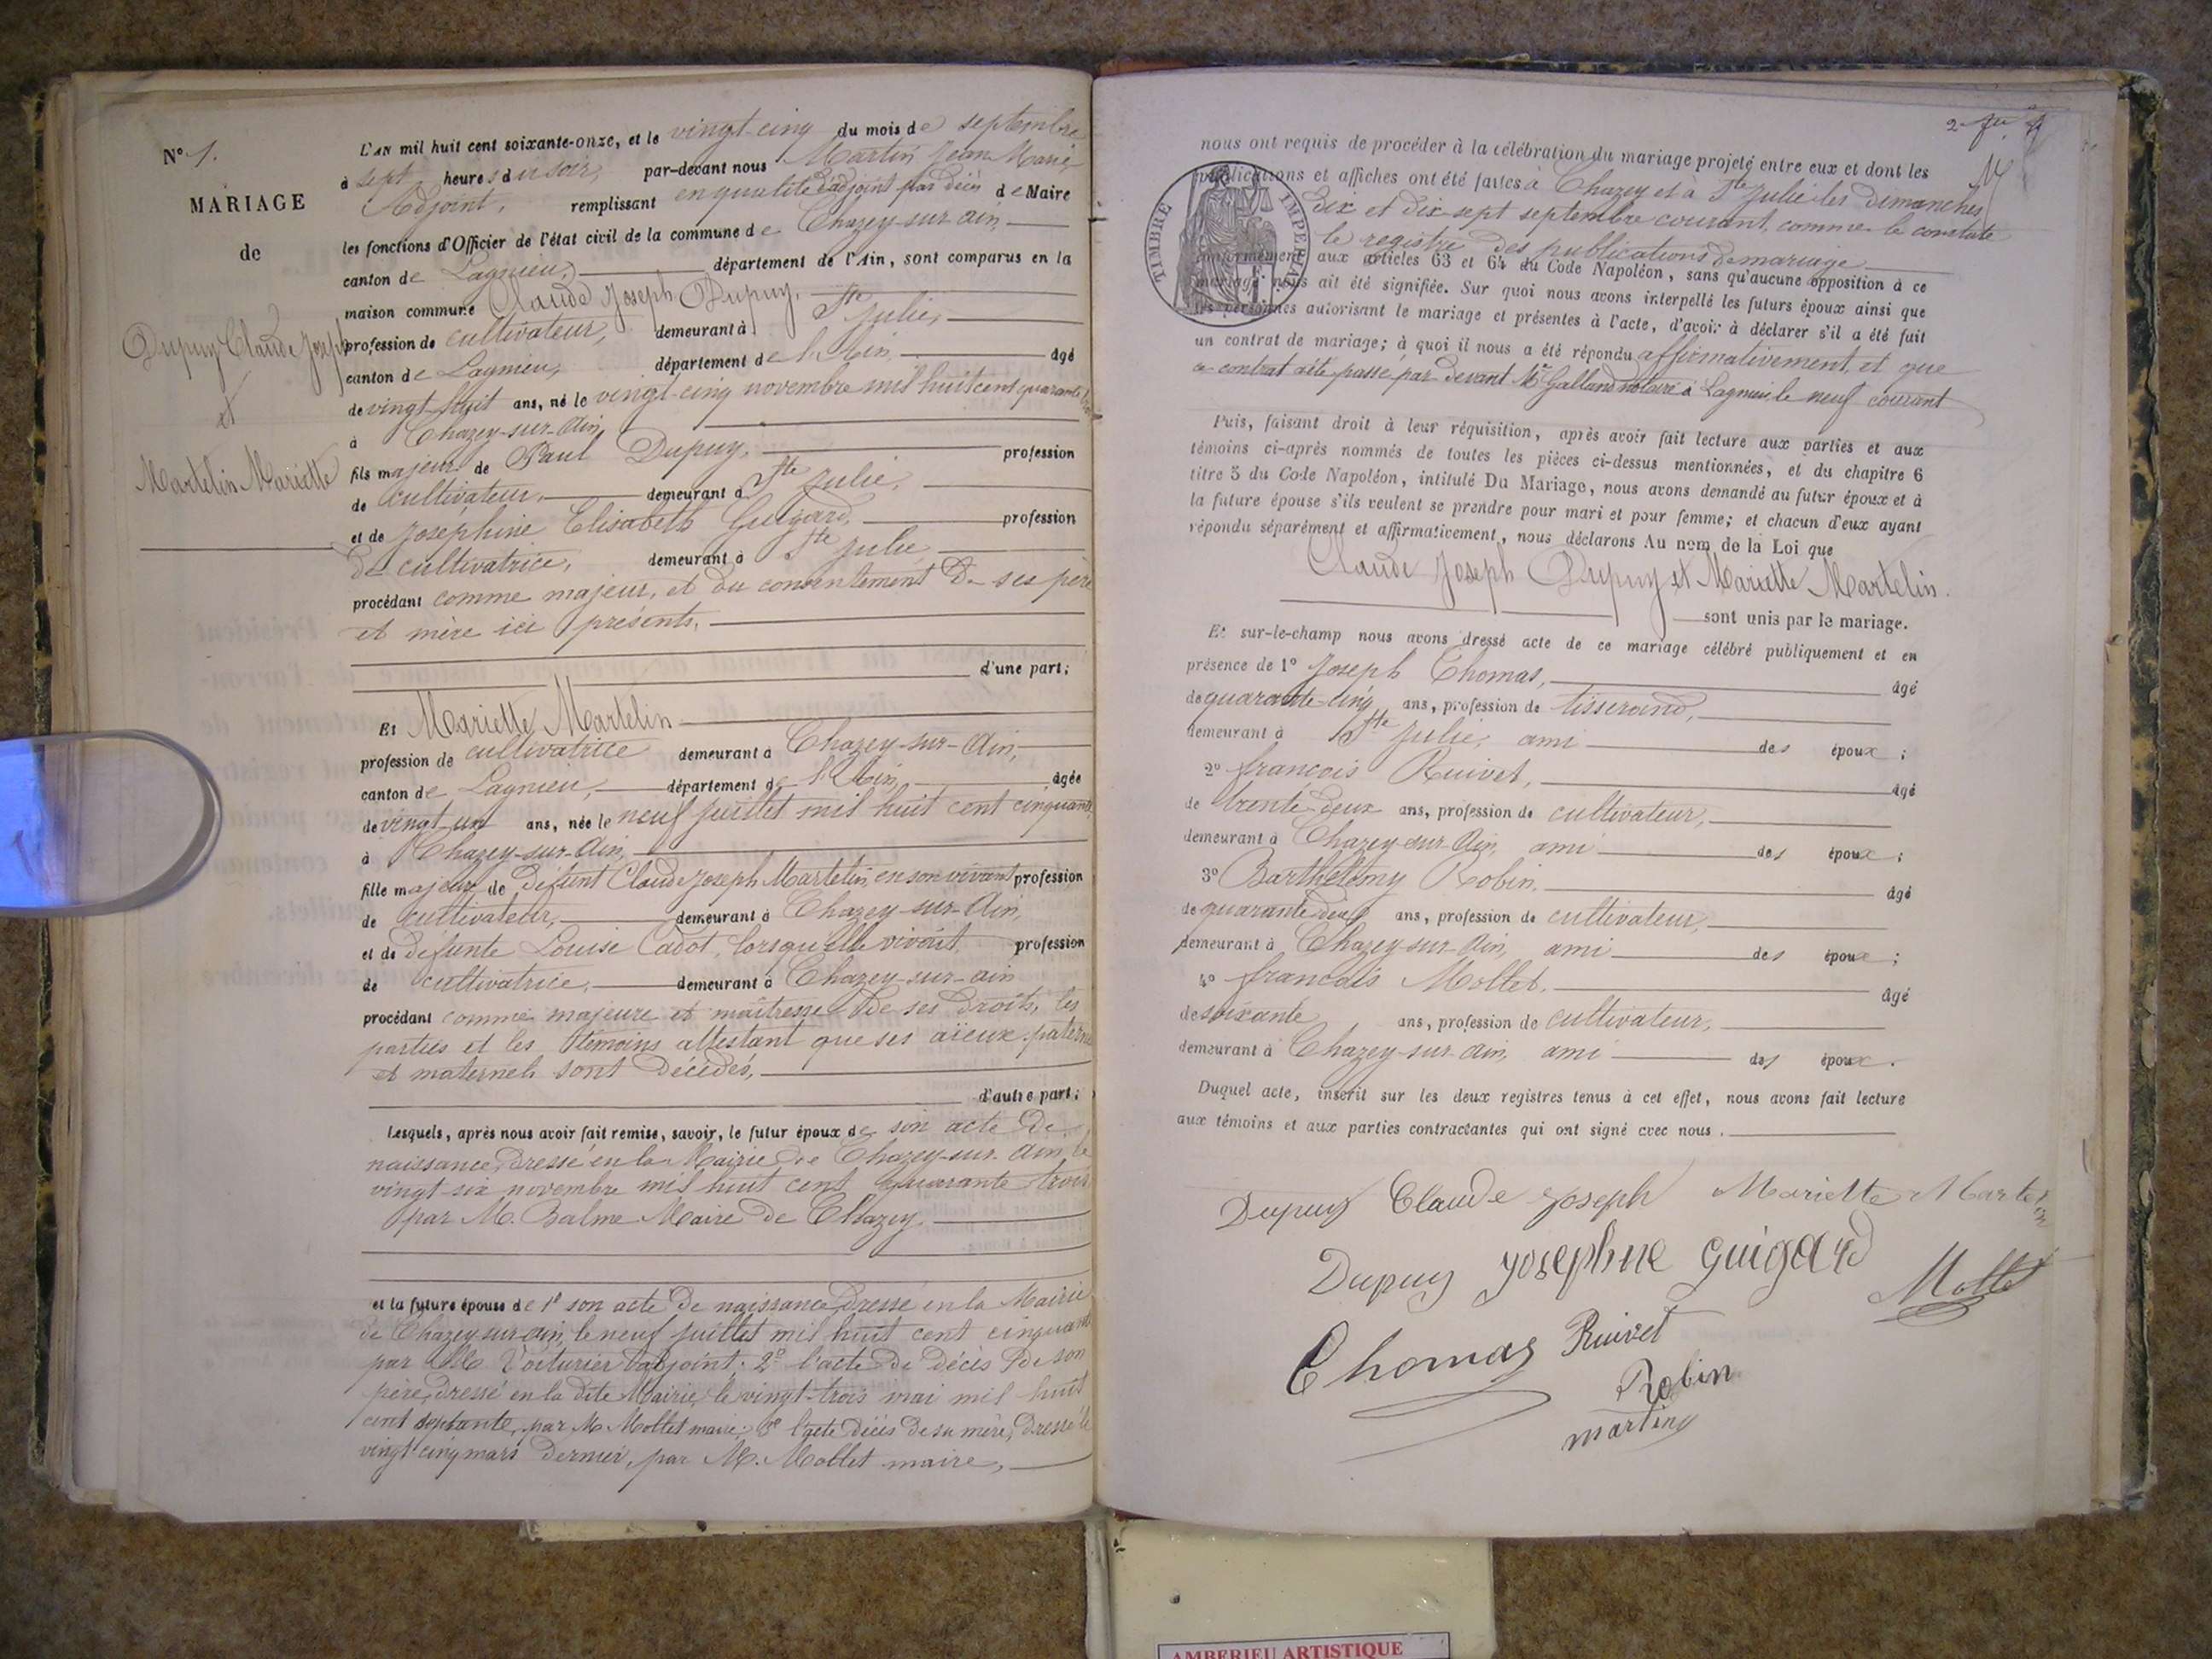 N° 1.
MARIAGE
de
Dupuy Claude Joseph
et
Martelin Mariette
L'AN mil huit cent soixante-onze, et le vingt-cinq du mois de septembre
à sept heures du soir, par-devant nous Martin Jean Marie,
Adjoint, remplissant en qualité d'adjoint par décès de Maire
les fonctions d'Officier de l'état civil de la commune de Chazey-sur-Ain,
canton de Lagnieu, département de l'Ain, sont comparus en la
maison commune Claude Joseph Dupuy,
profession de cultivateur, demeurant à Ste Julie,
canton de Lagnieu, département de l'Ain, âgé
de vingt-huit ans, né le vingt-cinq novembre mil huit cent quarante
à Chazey-sur-Ain,
fils majeur de Paul Dupuy, profession
de cultivateur, demeurant à Ste Julie,
et de Josephine Elisabeth Guigard, profession
de cultivatrice, demeurant à Ste Julie
procédant comme majeur, et du consentement de ses père
et mère ici présents.
d'une part;
Et Mariette Martelin
profession de cultivatrice demeurant à Chazey-sur-Ain,
canton de Lagnieu, département de l'Ain, âgée
de vingt-un ans, née le neuf juillet mil huit cent cinquante
à Chazey-sur-Ain,
fille majeure de défunt Claude Joseph Martelin, en son vivant profession
de cultivateur, demeurant à Chazey-sur-Ain,
et de défunte Louise Cadot, lorsqu'elle vivait, profession
de cultivatrice, demeurant à Chazey-sur-ain
procédant comme majeure et maîtresse de ses droits, les
parties et les témoins attestant que ses aïeux paternels
et maternels sont décédés,
d'autre part;
Lesquels, après nous avoir fait remise, savoir, le futur époux de son acte de
naissance, dressé en la Mairie de Chazey-sur-Ain le
vingt-six novembre mil huit cent quarante trois
par M. Balme Maire de Chazey.
et la future épouse de 1° son acte de naissance, dressé en la Mairie
de Chazey-sur-ain, le neuf juillet mil huit cent cinquante
par M. Voiturier adjoint; 2° l'acte de décès de son
père, dressé en la dite Mairie, le vingt-trois mai mil huit
cent septante, par M. Mollet maire; 3° l'acte décès de sa mère, dressé le
vingt cinq mars dernier, par M. Mollet maire,
nous ont requis de procéder à la célébration du mariage projeté entre eux et dont les
publications et affiches ont été faites à Chazey et à Ste Julie les dimanches
dix et dix-sept septembre courant, comme le constate
le registre des publications de mariage
conformément aux articles 63 et 64 du Code Napoléon, sans qu'aucune opposition à ce
mariage nous ait été signifiée. Sur quoi nous avons interpellé les futurs époux ainsi que
les personnes autorisant le mariage et présentes à l'acte, d'avoir à déclarer s'il a été fait
un contrat de mariage; à quoi il nous a été répondu affirmativement, et que
ce contrat a été passé par devant Me Galland notaire à Lagnieu, le neuf courant
TIMBRE IMPERIAL
1 F.
Puis, faisant droit à leur réquisition, après avoir fait lecture aux parties et aux
témoins ci-après nommés de toutes les pièces ci-dessus mentionnées, et du chapitre 6
titre 5 du Code Napoléon, intitulé Du Mariage, nous avons demandé au futur époux et à
la future épouse s'ils veulent se prendre pour mari et pour femme; et chacun d'eux ayant
répondu séparément et affirmativement, nous déclarons Au nom de la Loi que
Claude Joseph Dupuy et Mariette Martelin.
sont unis par le mariage.
Et sur-le-champ nous avons dressé acte de ce mariage célébré publiquement et en
présence de 1° Joseph Thomas, âgé
de quarante-cinq ans, profession de tisserand,
demeurant à Ste Julie, ami des époux;
2° francois Ruivet, âgé
de trente-deux ans, profession de cultivateur,
demeurant à Chazey-sur-Ain, ami des époux;
3° Barthélemy Robin, âgé
de quarante deux ans, profession de cultivateur,
demeurant à Chazey-sur-Ain, ami des époux;
4° francois Mollet, âgé
de soixante ans, profession de cultivateur,
demeurant à Chazey-sur-ain, ami des époux.
Duquel acte, inscrit sur les deux registres tenus à cet effet, nous avons fait lecture
aux témoins et aux parties contractantes qui ont signé avec nous.
Dupuy Claude joseph Mariette Martelin
Dupuy josephne guigard
Mollet
Thomas Ruivet
Robin
martin
AMBERIEU ARTISTIQUE